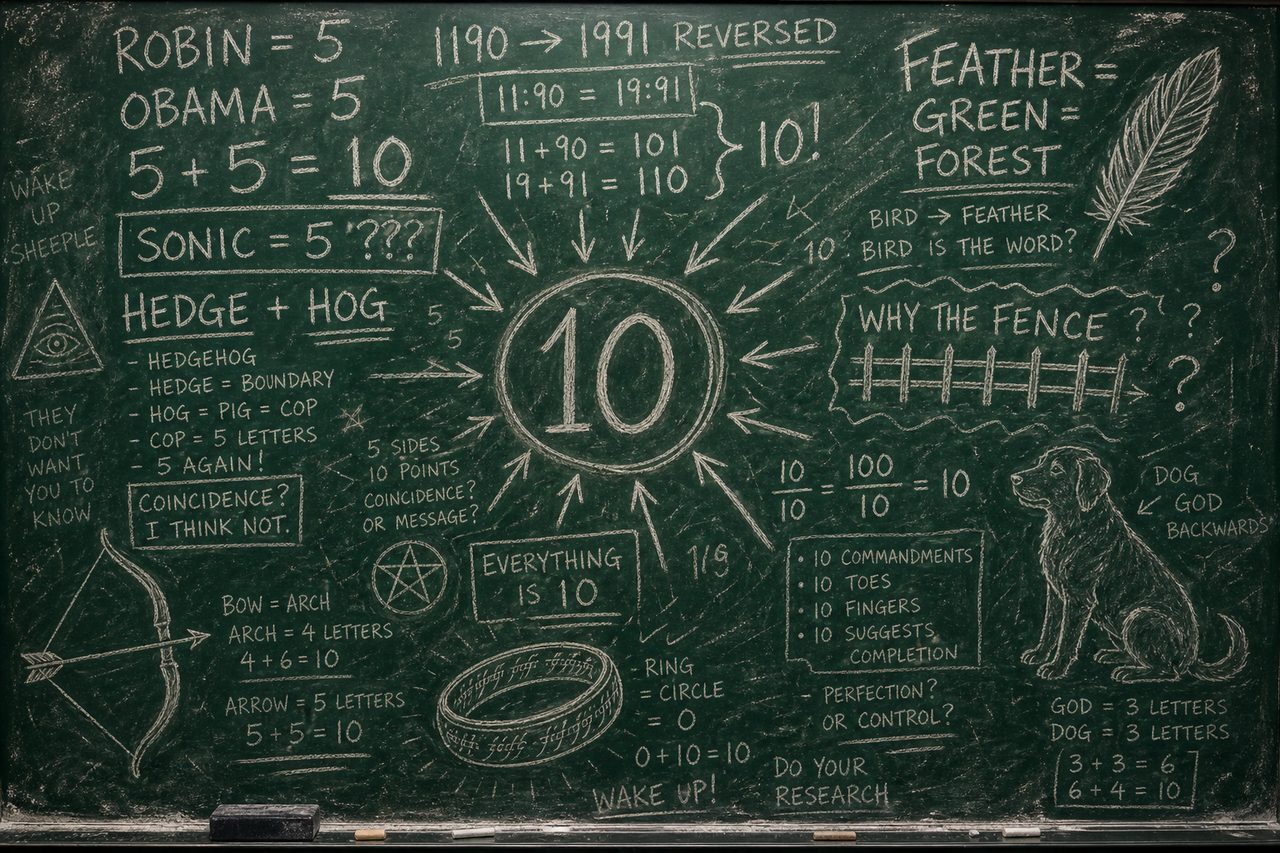 ROBIN = 5
OBAMA = 5
5 + 5 = 10
SONIC = 5 ???
HEDGE + HOG
- HEDGEHOG
- HEDGE = BOUNDARY
- HOG = PIG = COP
- COP = 5 LETTERS
- 5 AGAIN!
COINCIDENCE?
I THINK NOT.
WAKE
UP
SHEEPLE
THEY
DON'T
WANT
YOU TO
KNOW
1190 → 1991 REVERSED
11:90 = 19:91
11+90 = 101
19+91 = 110
10!
FEATHER =
GREEN =
FOREST
BIRD → FEATHER
BIRD IS THE WORD?
?
10
5
5
10
WHY THE FENCE ? ?
?
5 SIDES
10 POINTS
COINCIDENCE?
OR MESSAGE?
10/10 = 100/10 = 10
DOG
GOD
BACKWARDS
EVERYTHING
IS 10
1/9
• 10 COMMANDMENTS
• 10 TOES
• 10 FINGERS
• 10 SUGGESTS
COMPLETION
- PERFECTION?
OR CONTROL?
BOW = ARCH
ARCH = 4 LETTERS
4+6=10
ARROW = 5 LETTERS
5+5=10
- RING
= CIRCLE
= 0
0+10=10
WAKE UP!
DO YOUR
RESEARCH
GOD = 3 LETTERS
DOG = 3 LETTERS
3+3=6
6+4=10